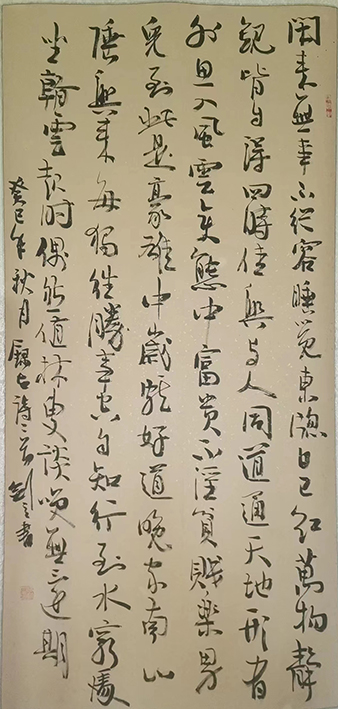 閑来無事不從容睡覺東窗日已紅萬物靜
觀皆自得四時佳興与人同道通天地形有
外思入風雲變態中富貴不淫貧賤樂男
兒到此是豪雄中歲頗好道晚家南山
陲興来每獨往勝事空自知行到水窮處
坐看雲起時偶然值林叟談笑無還期
癸巳年秋月錄古詩二首書